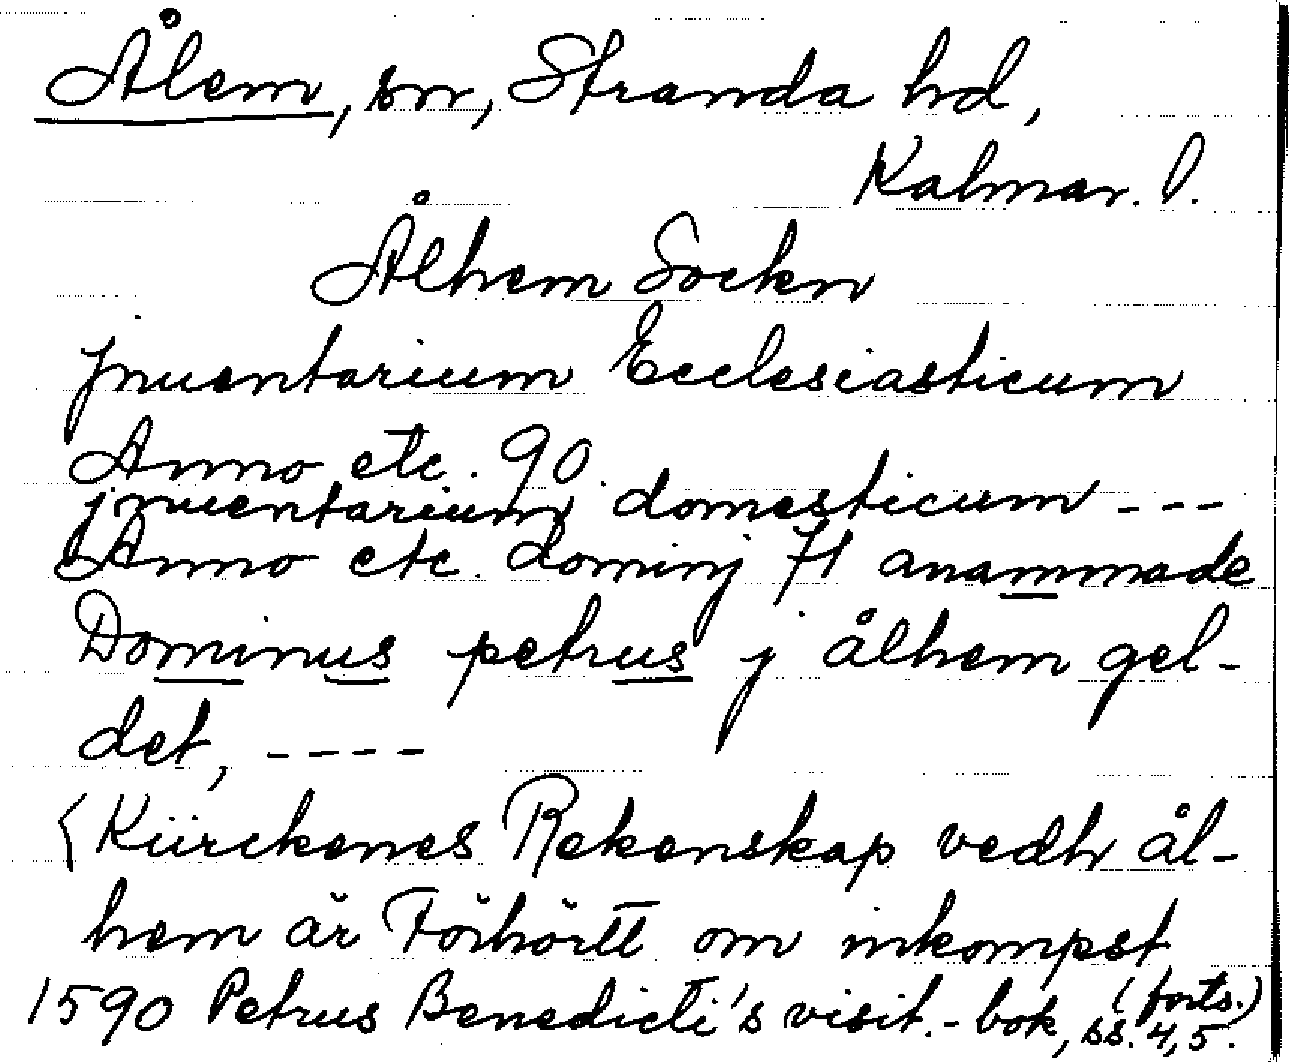 Ålem, sn, Stranda hd,
Kalmar. l.
Ålhem Sockn
jnuentarium Ecclesiasticum
Anno etc. 90
jnuentarium domesticum ---
Anno etc. dominj 71 anammade
Dominus petrus j ålhem gel-
det, ----
{Kiirckenes Rekenskap vedh ål-
hem är Förhörtt om inkompst
1590 Petrus Benedicti's visit.-bok, ss. 4, 5. (forts.)